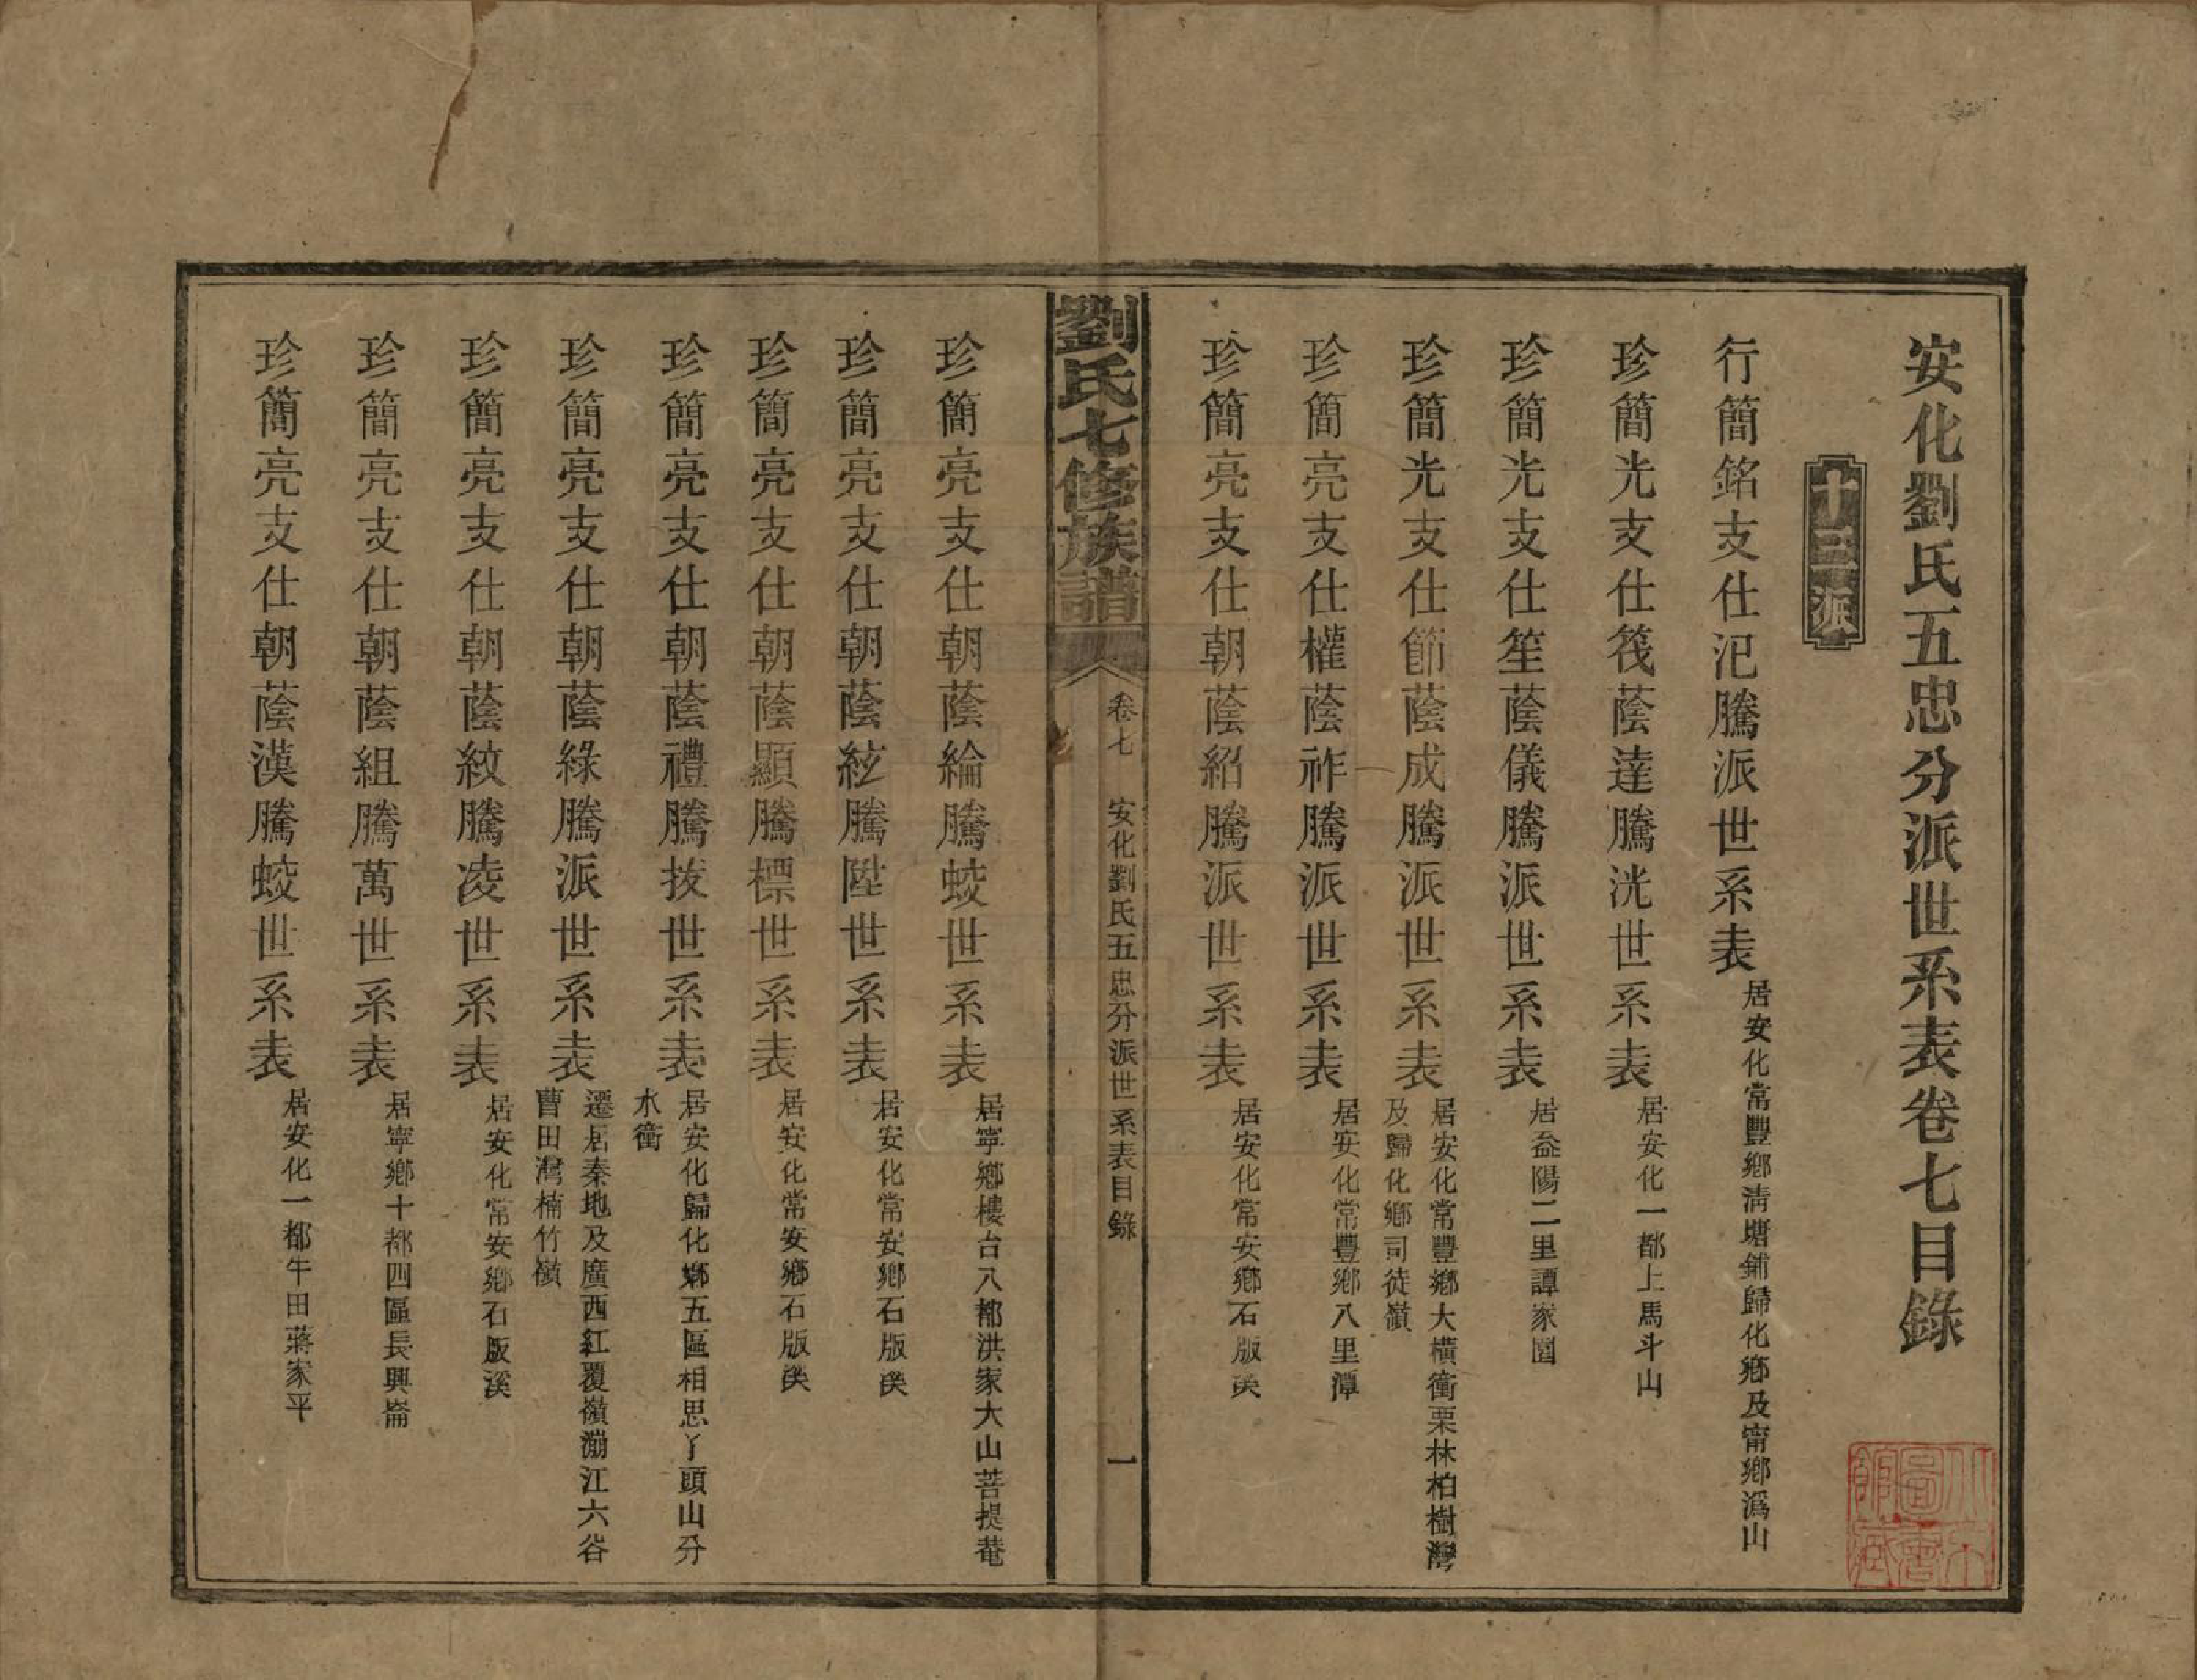 安化劉氏五忠分派世系表卷七目錄
十三派
行簡銘支仕汜騰派世系表 居安化常豐鄉淸塘鋪歸化鄉及甯鄉溈山
珍簡光支仕筏蔭達騰洸世系表 居安化一都上馬斗山
珍簡光支仕笙蔭儀騰派世系表 居益陽二里譚家園
珍簡光支仕節蔭成騰派世系表 居安化常豐鄉大橫衝栗林柏樹灣
及歸化鄉司徒嶺
珍簡亮支仕權蔭祚騰派世系表 居安化常豐鄉八里潭
珍簡亮支仕朝蔭紹騰派世系表 居安化常安鄉石版溪
劉氏七修族譜 卷七 安化劉氏五忠分派世系表目錄 一
珍簡亮支仕朝蔭綸騰蛟世系表 居寧鄉樓台八都洪家大山菩提菴
珍簡亮支仕朝蔭紘騰陞世系表 居安化常安鄉石版溪
珍簡亮支仕朝蔭顯騰標世系表 居安化常安鄉石版溪
珍簡亮支仕朝蔭禮騰拔世系表 居安化歸化鄉五區相思丫頭山分
水衝
珍簡亮支仕朝蔭綠騰派世系表 遷居秦地及廣西紅覆嶺瀏江六谷
曹田灣楠竹嶺
珍簡亮支仕朝蔭紋騰凌世系表 居安化常安鄉石版溪
珍簡亮支仕朝蔭組騰萬世系表 居寧鄉十都四區長興崙
珍簡亮支仕朝蔭漢騰蛟世系表 居安化一都牛田蔣家平